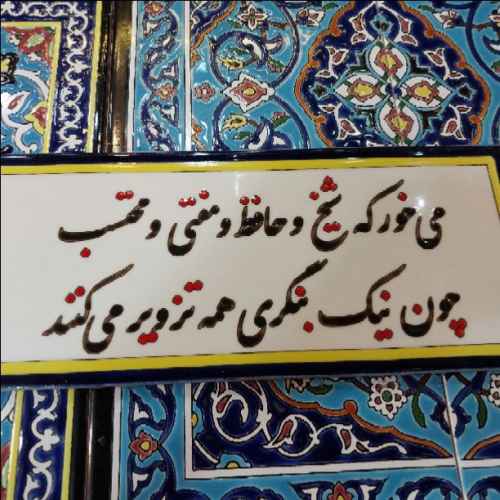 می خور که شیخ و حافظ و مفتی و محتسب
چون نیک بنگری همه تزویر می کنند